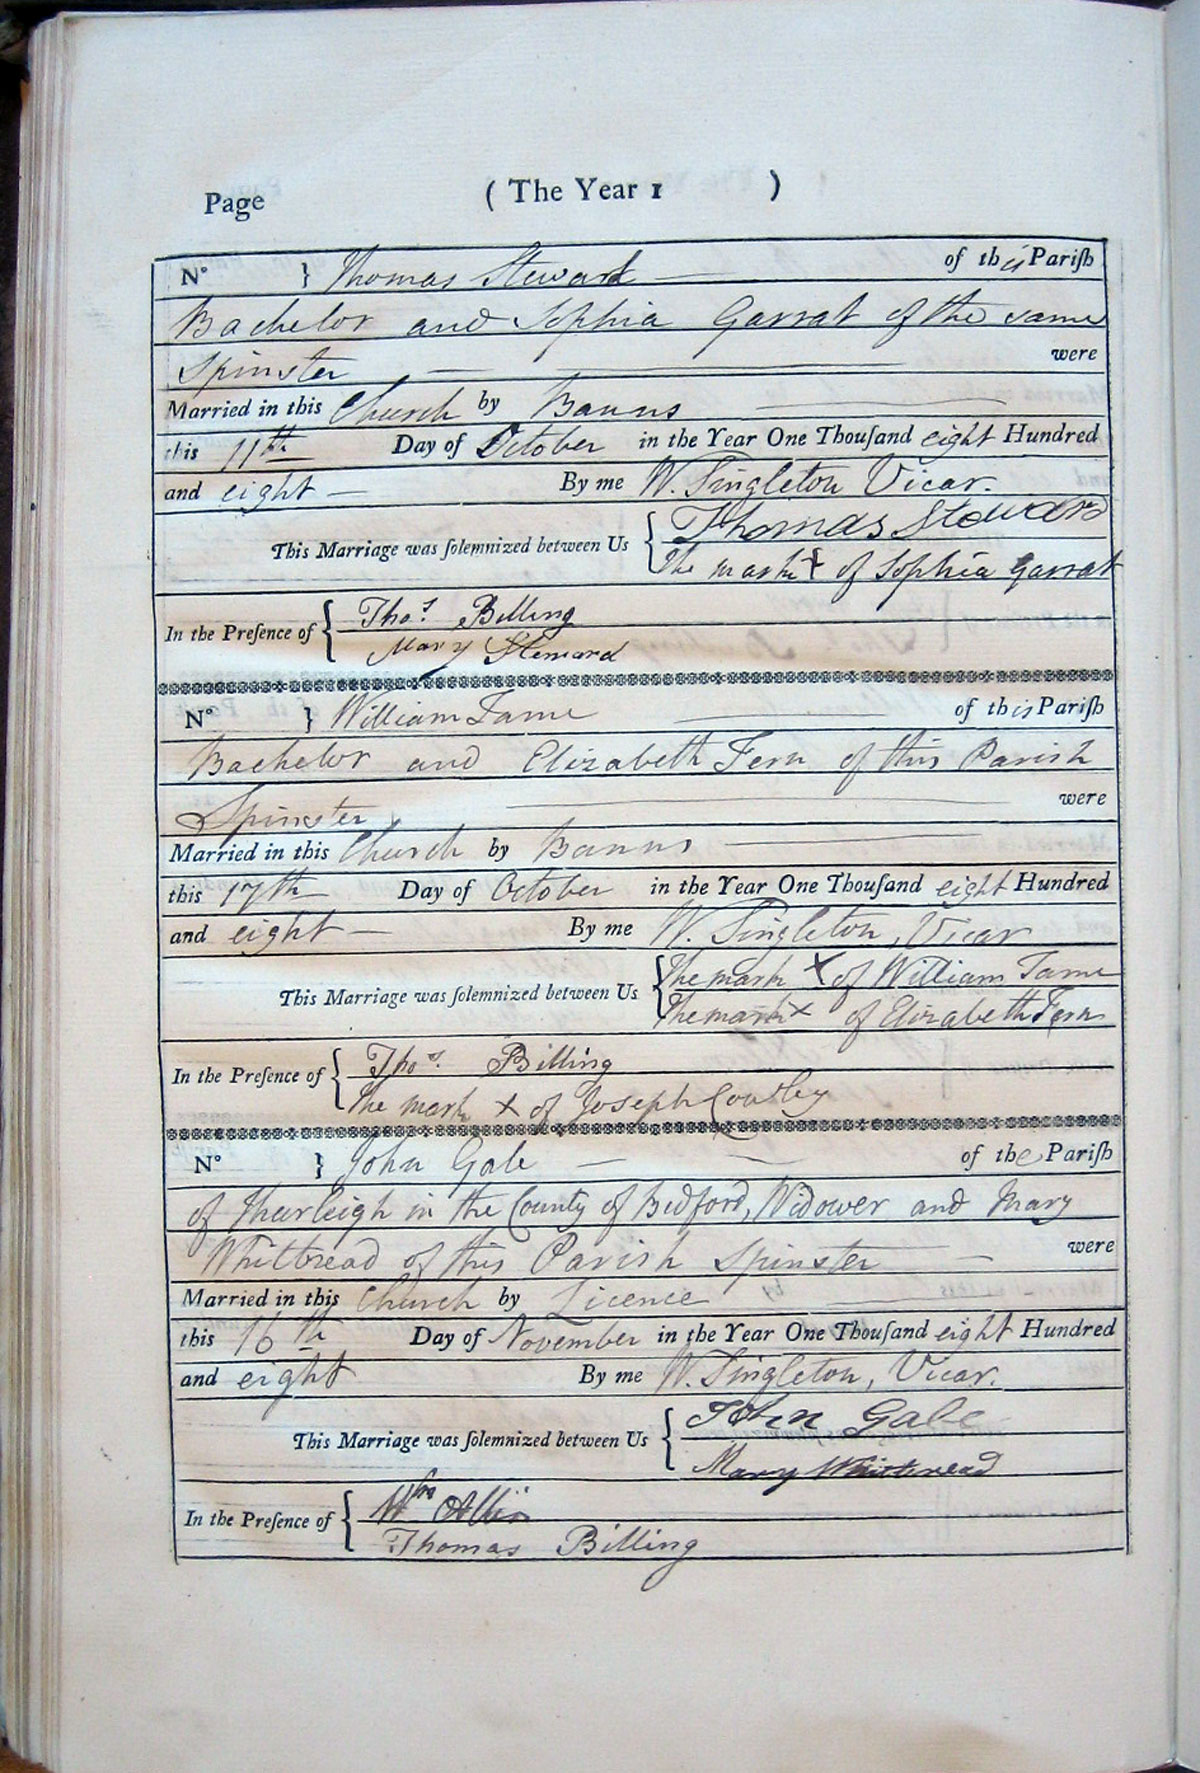 Page ( The Year 1 )
N° } Thomas Steward of this Pariſh
Bachelor and Sophia Garrat of the same
Spinster were
Married in this Church by Banns
this 11th Day of October in the Year One Thouſand eight Hundred
and eight By me W. Singleton Vicar.
This Marriage was ſolemnized between Us { Thomas Steward
The mark X of Sophia Garrat
In the Preſence of { Thos. Billing
Mary Steward
N° } William Tame of this Pariſh
Bachelor and Elizabeth Fern of this Parish
Spinster were
Married in this Church by Banns
this 17th Day of October in the Year One Thouſand eight Hundred
and eight By me W. Singleton, Vicar
This Marriage was ſolemnized between Us { The mark X of William Tame
The mark X of Elizabeth Fern
In the Preſence of { Thos. Billing
The mark X of Joseph Cowley
N° } John Gale of the Pariſh
of Thurleigh in the County of Bedford, Widower and Mary
Whitbread of this Parish Spinster were
Married in this Church by Licence
this 16th Day of November in the Year One Thouſand eight Hundred
and eight By me W. Singleton, Vicar.
This Marriage was ſolemnized between Us { John Gale
Mary Whitbread
In the Preſence of { Wm Allin
Thomas Billing